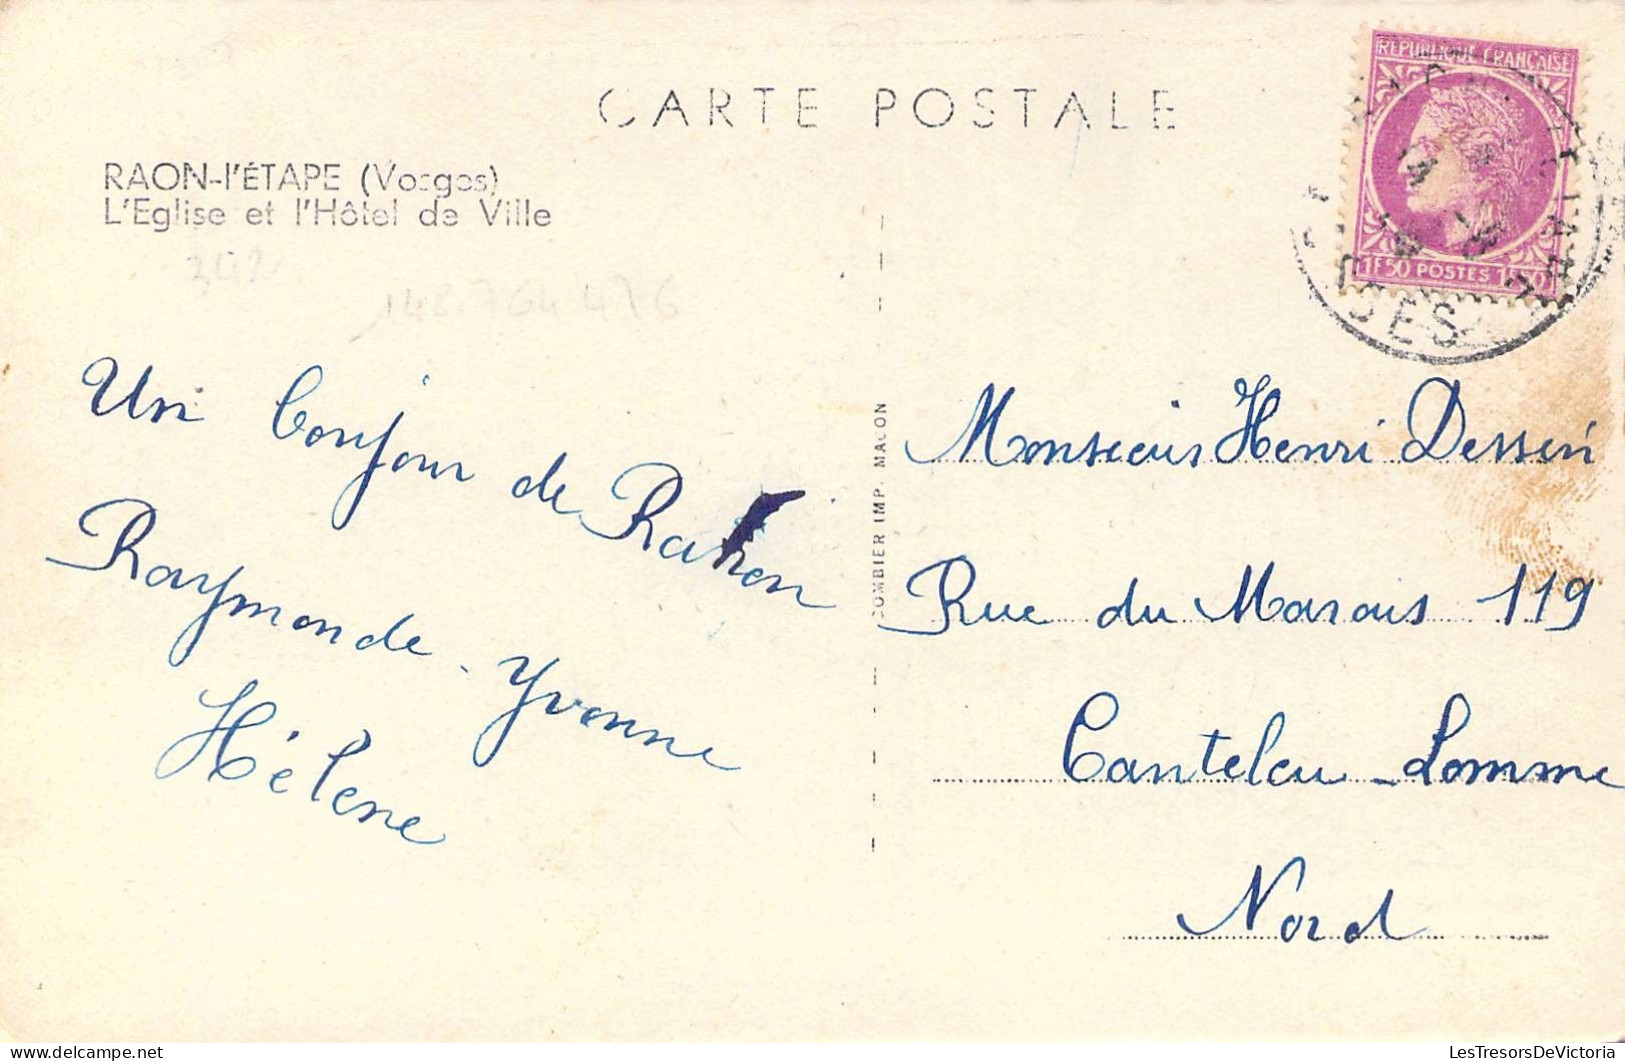 CARTE POSTALE
RAON-l'ÉTAPE (Vosges)
L'Eglise et l'Hôtel de Ville
342
148.764 476
REPUBLIQUE FRANÇAISE
1F50 POSTES 1F50
Un bonjour de Raon
Raymonde - Yvonne
Hélène
COMBIER IMP. MACON
Monsieur Henri Dessin
Rue du Marais 119
Canteleu-Lomme
Nord
LesTresorsDeVictoria